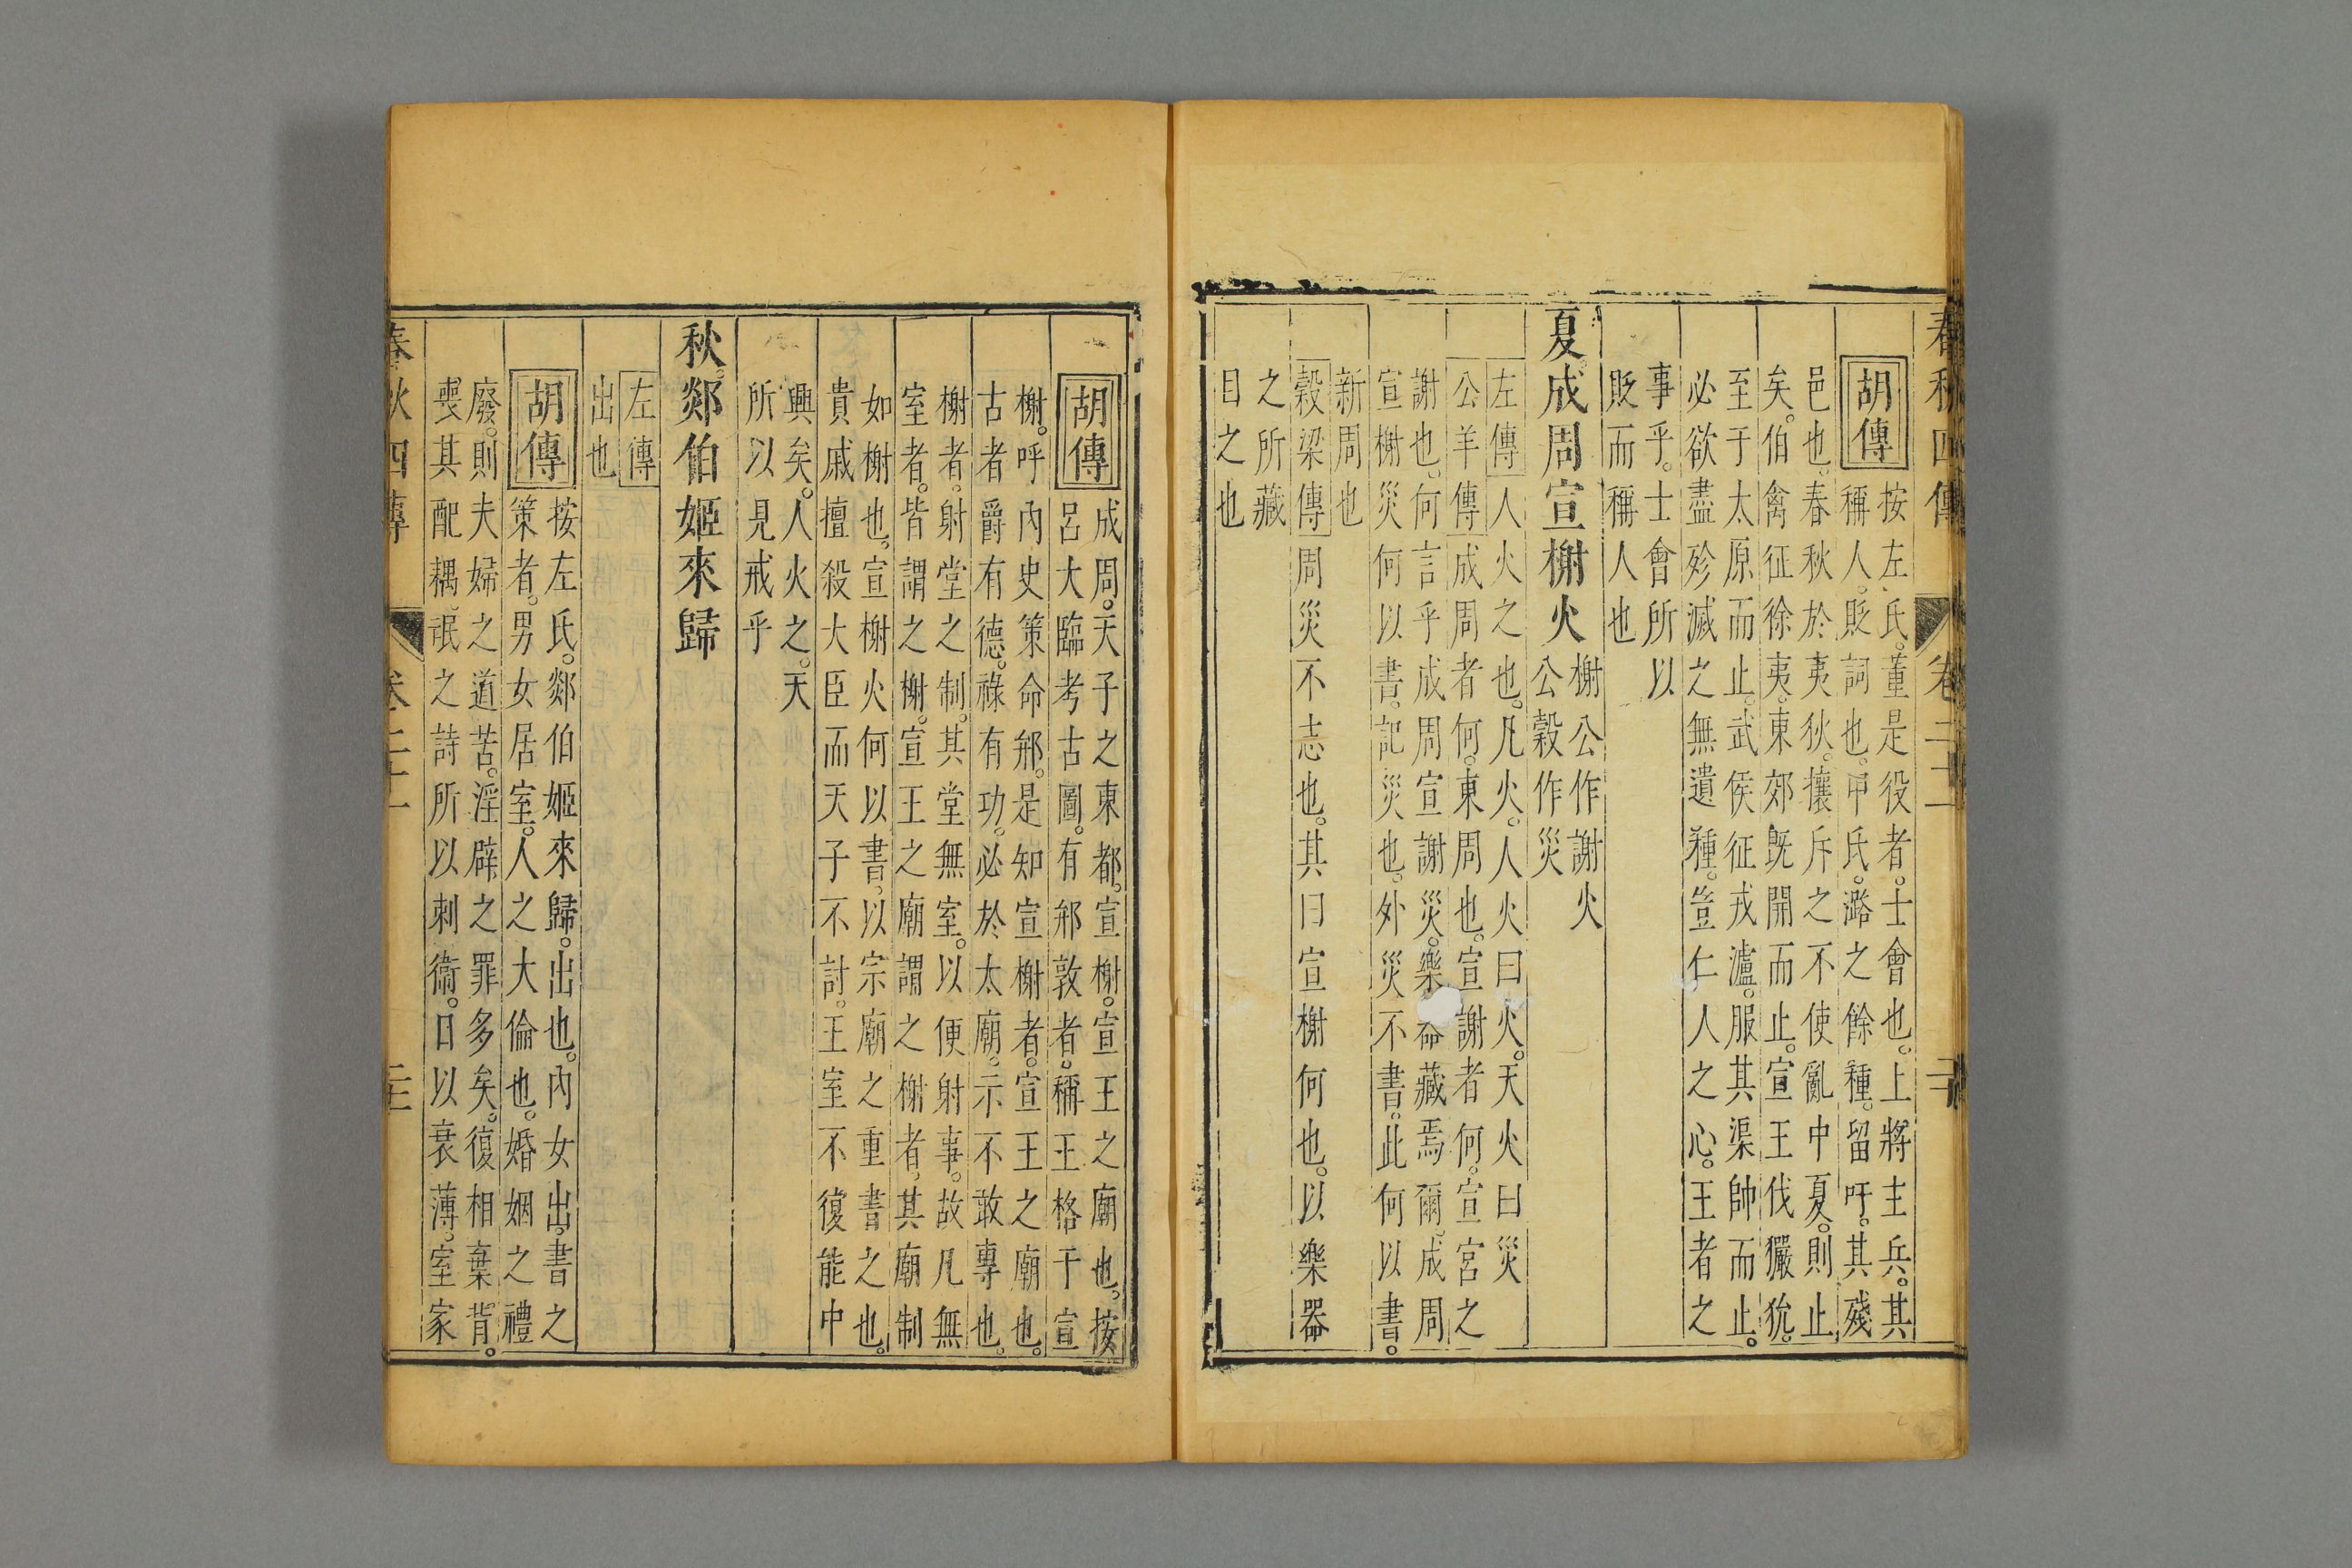 春秋四傳 卷二十一
胡傳 按左氏。董是役者。士會也。上將主兵。其
稱人。貶詞也。甲氏。潞之餘種。留吁。其殘
邑也。春秋於夷狄。攘斥之。不使亂中夏。則止
矣。伯禽征徐夷。東郊既開而止。宣王伐玁狁。
至于太原而止。武侯征戎瀘。服其渠帥而止。
必欲盡殄滅之無遺種。豈仁人之心。王者之
事乎。士會所以
貶而稱人也
夏。成周宣榭火 榭公作謝火
公穀作災
左傳 人火之也。凡火。人火曰火。天火曰災
公羊傳 成周者何。東周也。宣謝者何。宣宮之
謝也。何言乎成周宣謝災。樂器藏焉爾。成周
宣榭災何以書。記災也。外災不書。此何以書。
新周也
穀梁傳 周災不志也。其曰宣榭何也。以樂器
之所藏
目之也
胡傳 成周。天子之東都。宣榭。宣王之廟也。按
呂大臨考古圖。有䢵敦者。稱王格于宣
榭。呼內史策命䢵。是知宣榭者。宣王之廟也。
古者爵有德。祿有功。必於太廟。示不敢專也。
榭者。射堂之制。其堂無室。以便射事。故凡無
室者。皆謂之榭。宣王之廟謂之榭者。其廟制
如榭也。宣榭火何以書。以宗廟之重書之也。
貴戚擅殺大臣而天子不討。王室不復能中
興矣。人火之。天
所以見戒乎
秋。郯伯姬來歸
左傳
出也
胡傳 按左氏。郯伯姬來歸。出也。內女出。書之
策者。男女居室。人之大倫也。婚姻之禮
廢。則夫婦之道苦。淫辟之罪多矣。復相棄背。
喪其配耦。氓之詩所以刺衛。日以衰薄。室家
春秋四傳 卷二十一